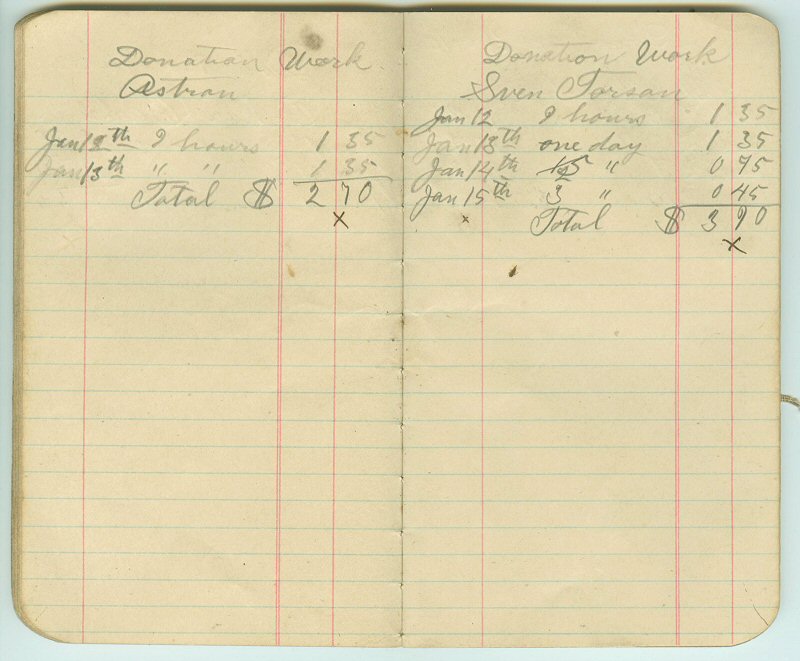 Donation Work
Astron
Jan 12th 9 hours 1 35
Jan 13th " " 1 35
Total $ 2 70
x
Donation Work
Sven Torson
Jan 12 9 hours 1 35
Jan 13th one day 1 35
Jan 14th 5 " 0 75
Jan 15th 3 " 0 45
Total $ 3 90
x